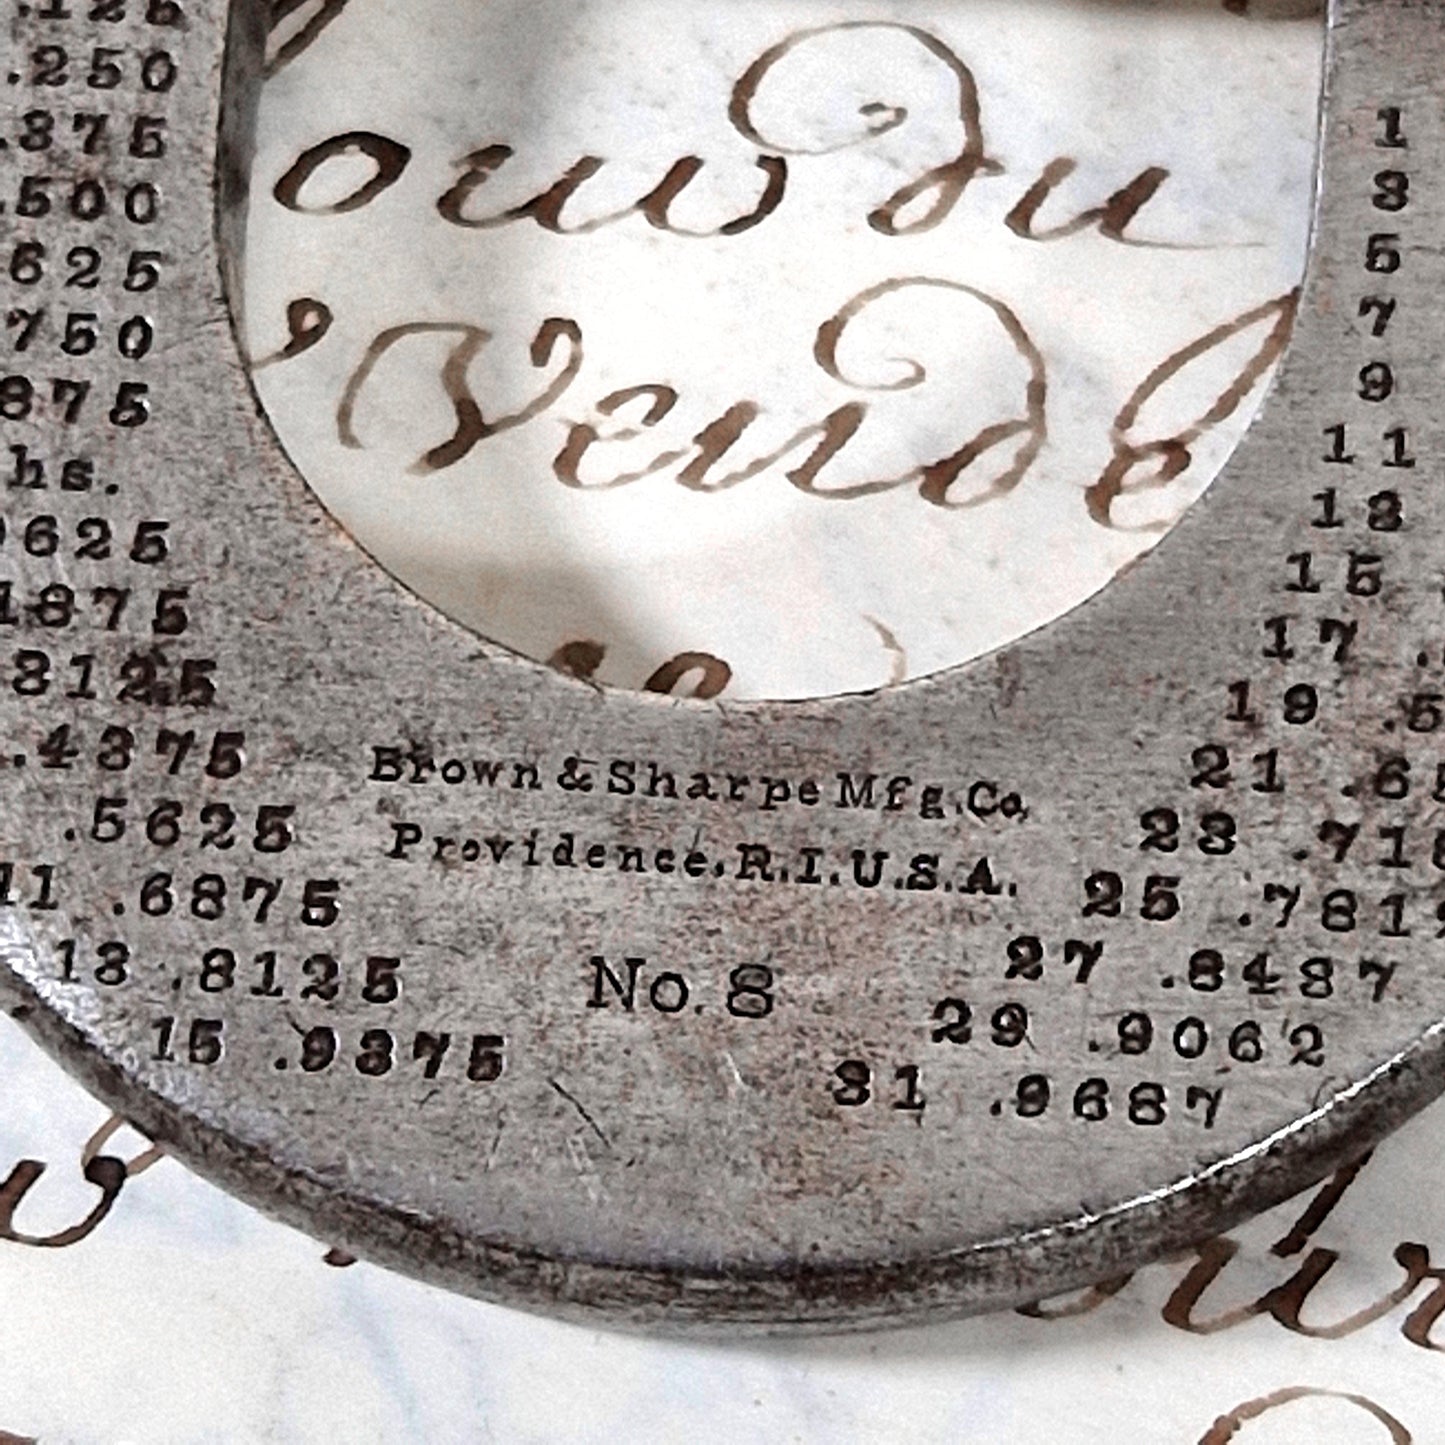 .125
.250
.375
.500
625
750
875
hs.
625
1875
.3125
.4375
.5625
11 .6875
13 .8125
15 .9375
Brown & Sharpe Mfg. Co.
Providence, R.I. U.S.A.
No. 8
1
3
5
7
9
11
13
15
17 .
19 .5
21 .6
23 .71
25 .781
27 .8437
29 .9062
31 .9687
du